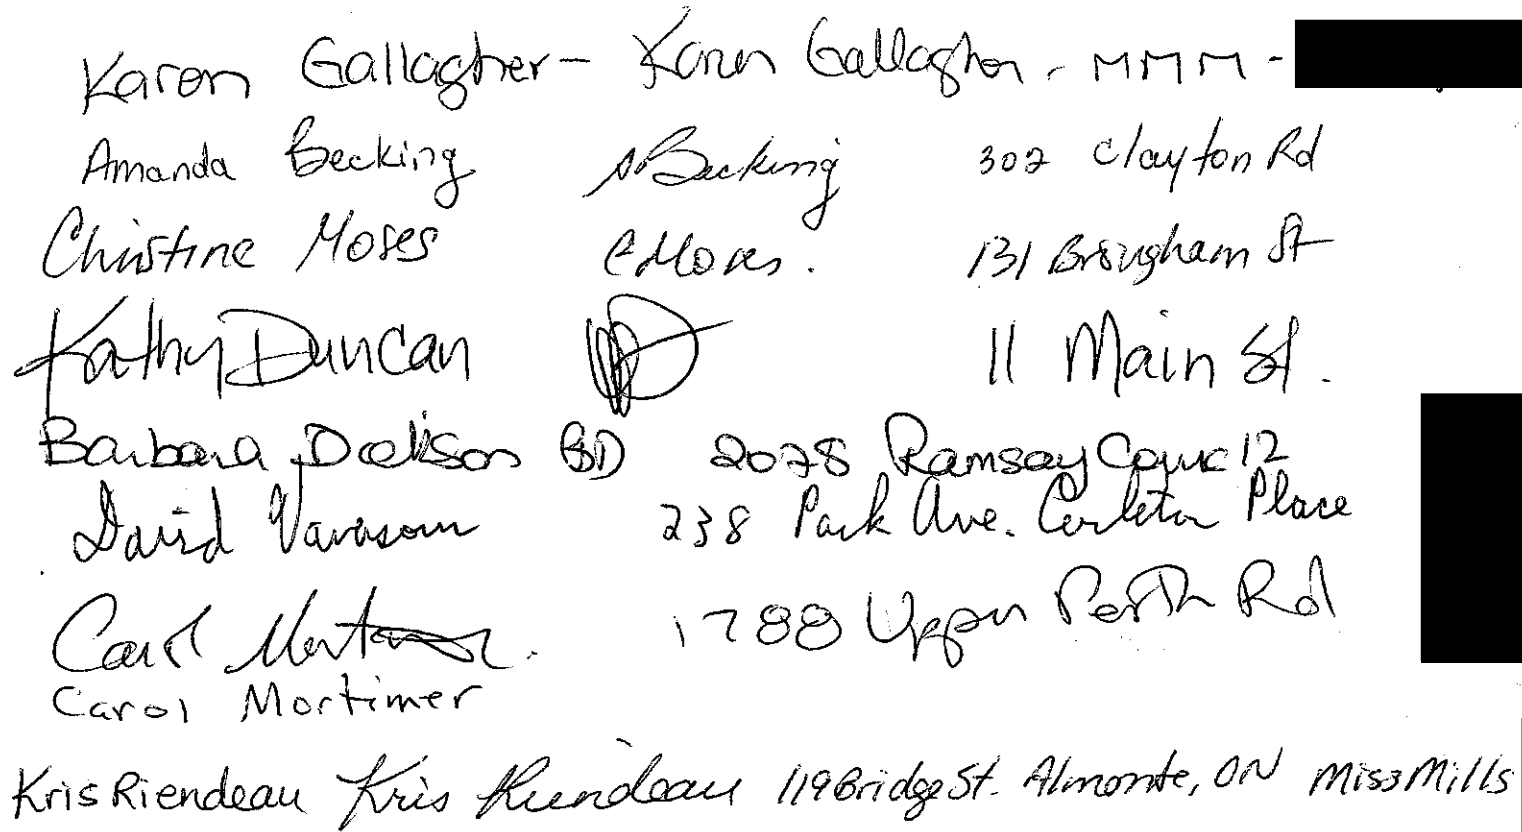 Karen Gallagher - Karen Gallagher - MMM -
Amanda Becking ABecking 302 Clayton Rd
Christine Moses CMoses. 131 Brougham St
Kathy Duncan 11 Main St.
Barbara Dickson BD 2078 Ramsay Conc 12
David Vavasour 238 Park Ave. Carleton Place
Carol Mortimer 1788 Upper Perth Rd
Carol Mortimer
Kris Riendeau Kris Riendeau 119 Bridge St. Almonte, ON Miss Mills